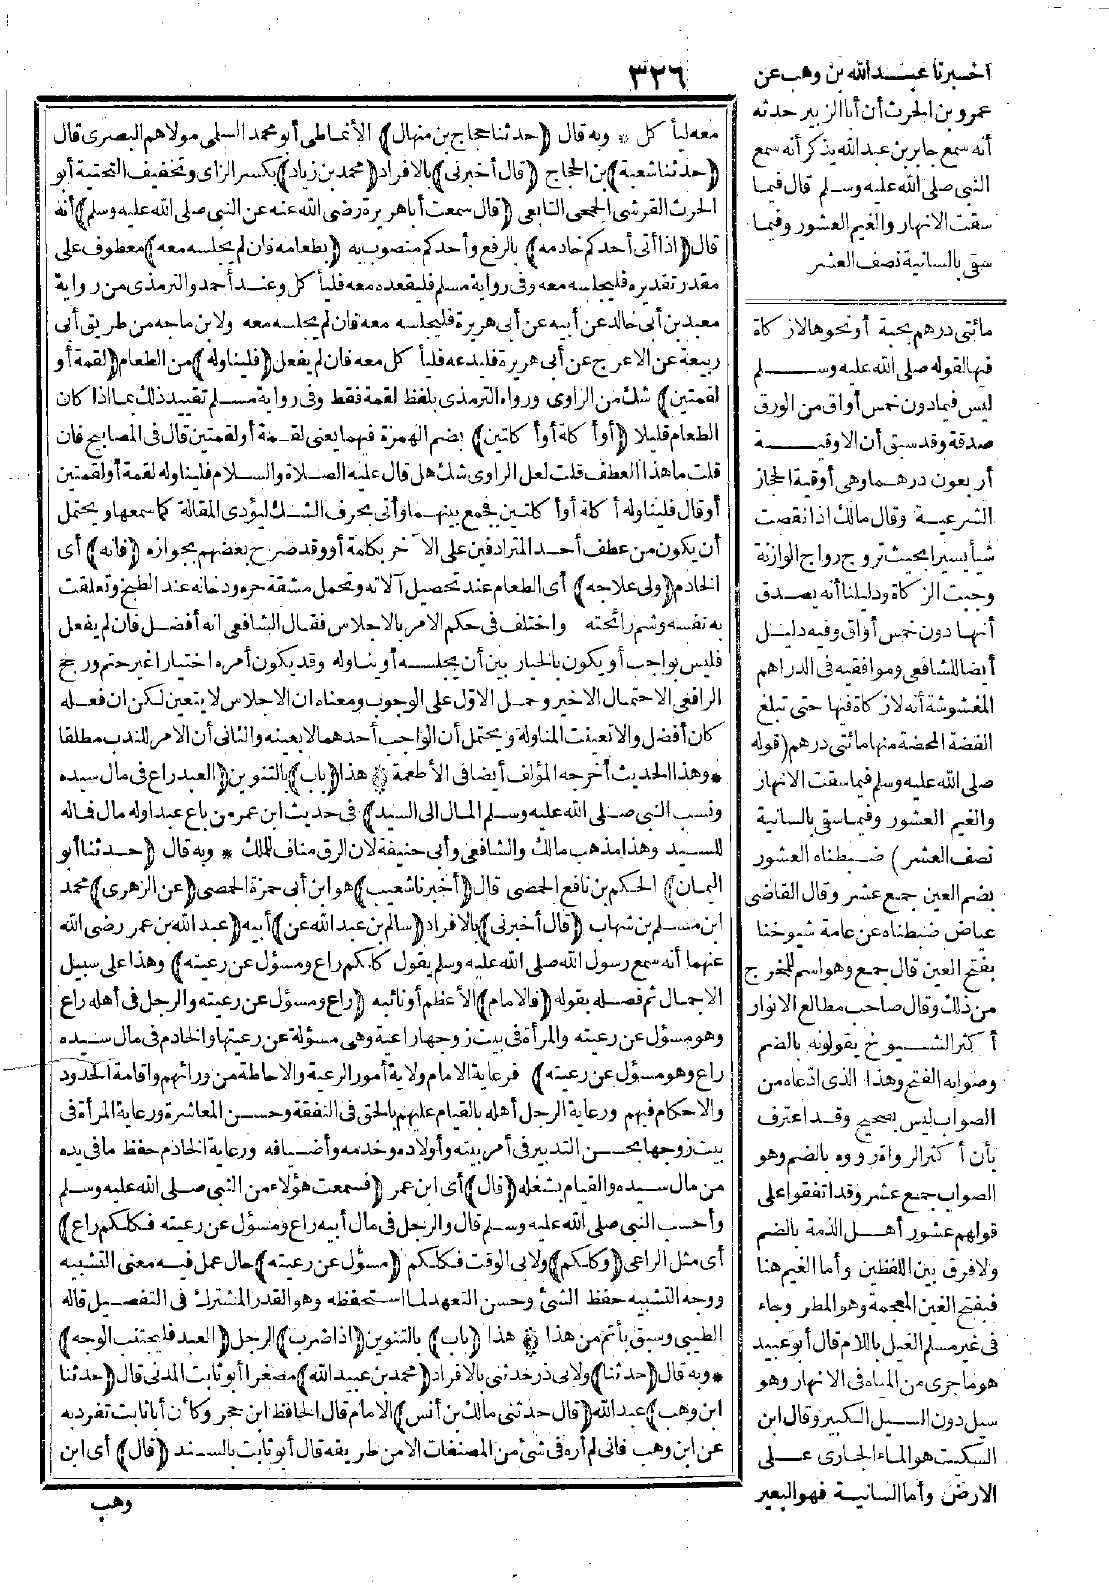 ٣٢٦
معه ليأكل * وبه قال (حدثنا حجاج بن منهال) الأنماطى أبو محمد السلمى مولاهم البصرى قال
(حدثنا شعبة) بن الحجاج (قال أخبرنى) بالافراد (محمد بن زياد) بكسر الزاى وتخفيف التحتية أبو
الحرث القرشى الجمحى التابعى (قال سمعت أباهريرة رضى الله عنه عن النبى صلى الله عليه وسلم) أنه
قال (اذا أتى أحدكم خادمه) بالرفع وأحدكم منصوب به (بطعامه فان لم يجلسه معه) معطوف على
مقدر تقديره فليجلسه معه وفى رواية مسلم فليقعده معه فليأكل وعند أحمد والترمذى من رواية
معبد بن أبى خالد عن أبيه عن أبى هريرة فليجلسه معه فان لم يجلسه معه ولابن ماجه من طريق أبى
ربيعة عن الاعرج عن أبى هريرة فليدعه فليأكل معه فان لم يفعل (فليناوله) من الطعام (لقمة أو
لقمتين) شك من الراوى ورواه الترمذى بلفظ لقمة فقط وفى رواية مسلم تقييد ذلك بما اذا كان
الطعام قليلا (أوأكلة أوأكلتين) بضم الهمزة فيهما يعنى لقمة أولقمتين قال فى المصابيح فان
قلت ما هذا العطف قلت لعل الراوى شك هل قال عليه الصلاة والسلام فليناوله لقمة أولقمتين
أوقال فليناوله أكلة أوأكلتين فجمع بينهما وأتى بحرف الشك ليؤدى المقالة كما سمعها ويحتمل
أن يكون من عطف أحد المترادفين على الآخر بكلمة أو وقد صرح بعضهم بجوازه (فانه) أى
الخادم (ولى علاجه) أى الطعام عند تحصيل آلاته وتحمل مشقة حره ودخانه عند الطبخ وتعلقت
به نفسه وشم رائحته واختلف فى حكم الامر بالاجلاس فقال الشافعى انه أفضل فان لم يفعل
فليس بواجب أو يكون بالخيار بين أن يجلسه أو يناوله وقد يكون أمره اختيارا غير حتم ورجح
الرافعى الاحتمال الاخير وحمل الاول على الوجوب ومعناه ان الاجلاس لا يتعين لكن ان فعله
كان أفضل والاتعينت المناولة ويحتمل أن الواجب أحدهما لابعينه والثانى أن الامر للندب مطلقا
* وهذا الحديث أخرجه المؤلف أيضا فى الأطعمة هذا (باب) بالتنوين (العبد راع فى مال سيده
ونسب النبى صلى الله عليه وسلم المال الى السيد) فى حديث ابن عمر من باع عبدا وله مال فماله
للسيد وهذا مذهب مالك والشافعى وأبى حنيفة لان الرق مناف للملك * وبه قال (حدثنا أبو
اليمان) الحكم بن نافع الحمصى قال (أخبرنا شعيب) هو ابن أبى حمزة الحمصى (عن الزهرى) محمد
ابن مسلم بن شهاب (قال أخبرنى) بالافراد (سالم بن عبد الله عن) أبيه (عبد الله بن عمر رضى الله
عنهما أنه سمع رسول الله صلى الله عليه وسلم يقول كلكم راع ومسؤل عن رعيته) وهذا على سبيل
الاجمال ثم فصله بقوله (فالامام) الأعظم أونائبه (راع ومسؤل عن رعيته والرجل فى أهله راع
وهو مسؤل عن رعيته والمرأة فى بيت زوجها راعية وهى مسؤلة عن رعيتها والخادم فى مال سيده
راع وهو مسؤل عن رعيته) فرعاية الامام ولاية أمور الرعية والاحاطة من ورائهم واقامة الحدود
والاحكام فيهم ورعاية الرجل أهله بالقيام عليهم بالحق فى النفقة وحسن المعاشرة ورعاية المرأة فى
بيت زوجها بحسن التدبير فى أمر بيته وأولاده وخدمه وأضيافه ورعاية الخادم حفظ ما فى يده
من مال سيده والقيام بشغله (قال) أى ابن عمر (فسمعت هؤلاء من النبى صلى الله عليه وسلم
وأحسب النبى صلى الله عليه وسلم قال والرجل فى مال أبيه راع ومسؤل عن رعيته فكلكم راع)
أى مثل الراعى (وكلكم) ولابى الوقت فكلكم (مسؤل عن رعيته) حال عمل فيه معنى التشبيه
ووجه التشبيه حفظ الشئ وحسن التعهد لما استحفظه وهو القدر المشترك فى التفصيل قاله
الطيبى وسبق بأتم من هذا هذا (باب) بالتنوين (اذا ضرب) الرجل (العبد فليجتنب الوجه)
* وبه قال (حدثنا) ولابى ذر حدثنى بالافراد (محمد بن عبيد الله) مصغرا أبو ثابت المدنى قال (حدثنا
ابن وهب) عبد الله (قال حدثنى مالك بن أنس) الامام قال الحافظ ابن حجر وكأن أباثابت تفرد به
عن ابن وهب فانى لم أره فى شئ من المصنفات الامن طريقه قال أبو ثابت بالسند (قال) أى ابن
وهب
أخبرنا عبد الله بن وهب عن
عمرو بن الحرث أن أبا الزبير حدثه
أنه سمع جابر بن عبد الله يذكر أنه سمع
النبى صلى الله عليه وسلم قال فيما
سقت الانهار والغيم العشور وفيما
سقى بالسانية نصف العشر
مائتى درهم بحبة أونحوها لازكاة
فيها لقوله صلى الله عليه وسلم
ليس فيما دون خمس أواق من الورق
صدقة وقد سبق أن الاوقية
أربعون درهما وهى أوقية الحجاز
الشرعية وقال مالك اذا نقصت
شيأ يسيرا بحيث تروج رواج الوازنة
وجبت الزكاة ودليلنا أنه يصدق
أنها دون خمس أواق وفيه دليل
أيضا للشافعى وموافقيه فى الدراهم
المغشوشة أنه لازكاة فيها حتى تبلغ
الفضة المحضة منها مائتى درهم (قوله
صلى الله عليه وسلم فيما سقت الانهار
والغيم العشور وفيما سقى بالسانية
نصف العشر) ضبطناه العشور
بضم العين جمع عشر وقال القاضى
عياض ضبطناه عن عامة شيوخنا
بفتح العين قال جمع وهو اسم للمخرج
من ذلك وقال صاحب مطالع الانوار
أكثر الشيوخ يقولونه بالضم
وصوابه الفتح وهذا الذى ادعاه من
الصواب ليس بصحيح وقد اعترف
بأن أكثر الرواة رووه بالضم وهو
الصواب جمع عشر وقد اتفقوا على
قولهم عشور أهل الذمة بالضم
ولافرق بين اللفظين وأما الغيم هنا
فبفتح الغين المعجمة وهو المطر وجاء
فى غير مسلم الغيل باللام قال أبو عبيد
هو ما جرى من المياه فى الانهار وهو
سيل دون السيل الكبير وقال ابن
السكيت هو الماء الجارى على
الارض وأما السانية فهو البعير